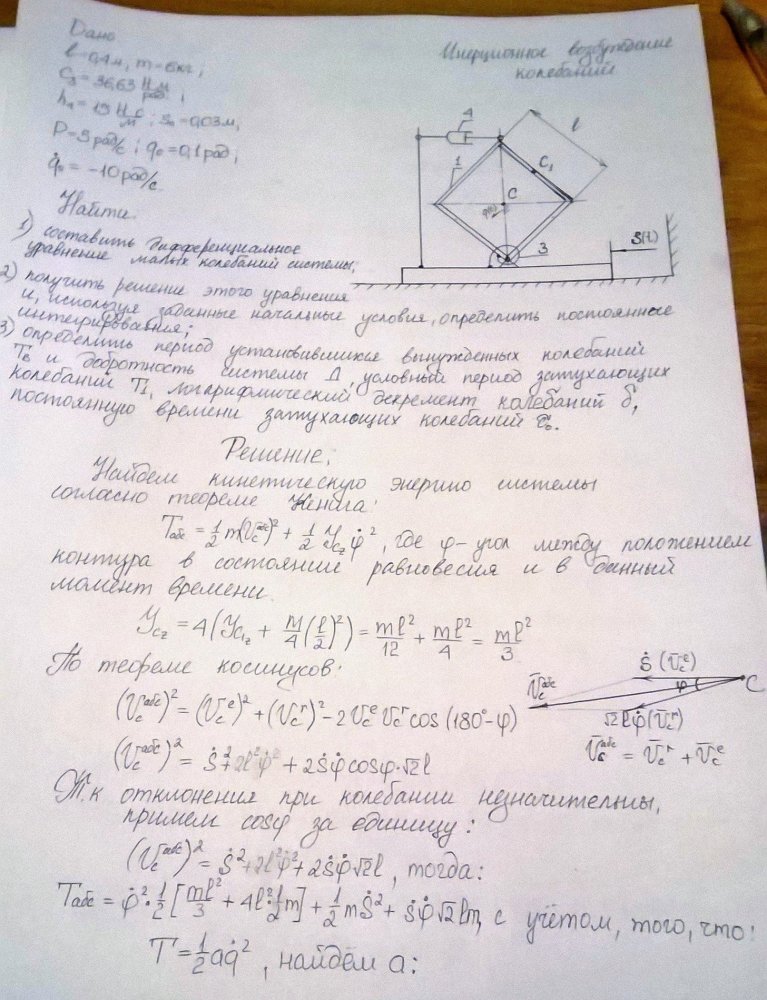 Дано
l=0,4м, m=6кг;
C₃=36,63 Н·м/рад;
h₄=19 Н·с/м; s₀=0,03м,
P=9рад/с; q₀=0,1рад;
q̇₀=-10рад/с
Инерционное возбуждение
колебаний
4
l
1
C₁
C
3
S(t)
Найти:
1) составить дифференциальное
уравнение малых колебаний системы;
2) получить решение этого уравнения
и, используя заданные начальные условия, определить постоянные
интегрирования;
3) определить период установившихся вынужденных колебаний
Tв и добротность системы Д, условный период затухающих
колебаний T₁, логарифмический декремент колебаний δ,
постоянную времени затухающих колебаний τ₀.
Решение:
Найдем кинетическую энергию системы
согласно теореме Кенига:
Tабс = 1/2 m(Vcабс)² + 1/2 Jcz φ̇², где φ-угол между положением
контура в состоянии равновесия и в данный
момент времени.
Jcz = 4(Jc₁z + m/4 (l/2)²) = ml²/12 + ml²/4 = ml²/3
По теореме косинусов:
Ṡ (V̄cᵉ)
V̄cабс
φ
C
√2lφ̇(V̄cʳ)
(Vcабс)² = (Vcᵉ)² + (Vcʳ)² - 2VcᵉVcʳcos(180°-φ)
V̄cабс = V̄cʳ + V̄cᵉ
(Vcабс)² = Ṡ² + 2l²φ̇² + 2Ṡφ̇cosφ·√2l
Т.к отклонения при колебании незначительны,
примем cosφ за единицу:
(Vcабс)² = Ṡ² + 2l²φ̇² + 2Ṡφ̇√2l, тогда:
Tабс = φ̇²·1/2[ml²/3 + 4l²·1/2m] + 1/2mṠ² + Ṡφ̇√2lm, с учётом, того, что:
T = 1/2 aq̇², найдём a: